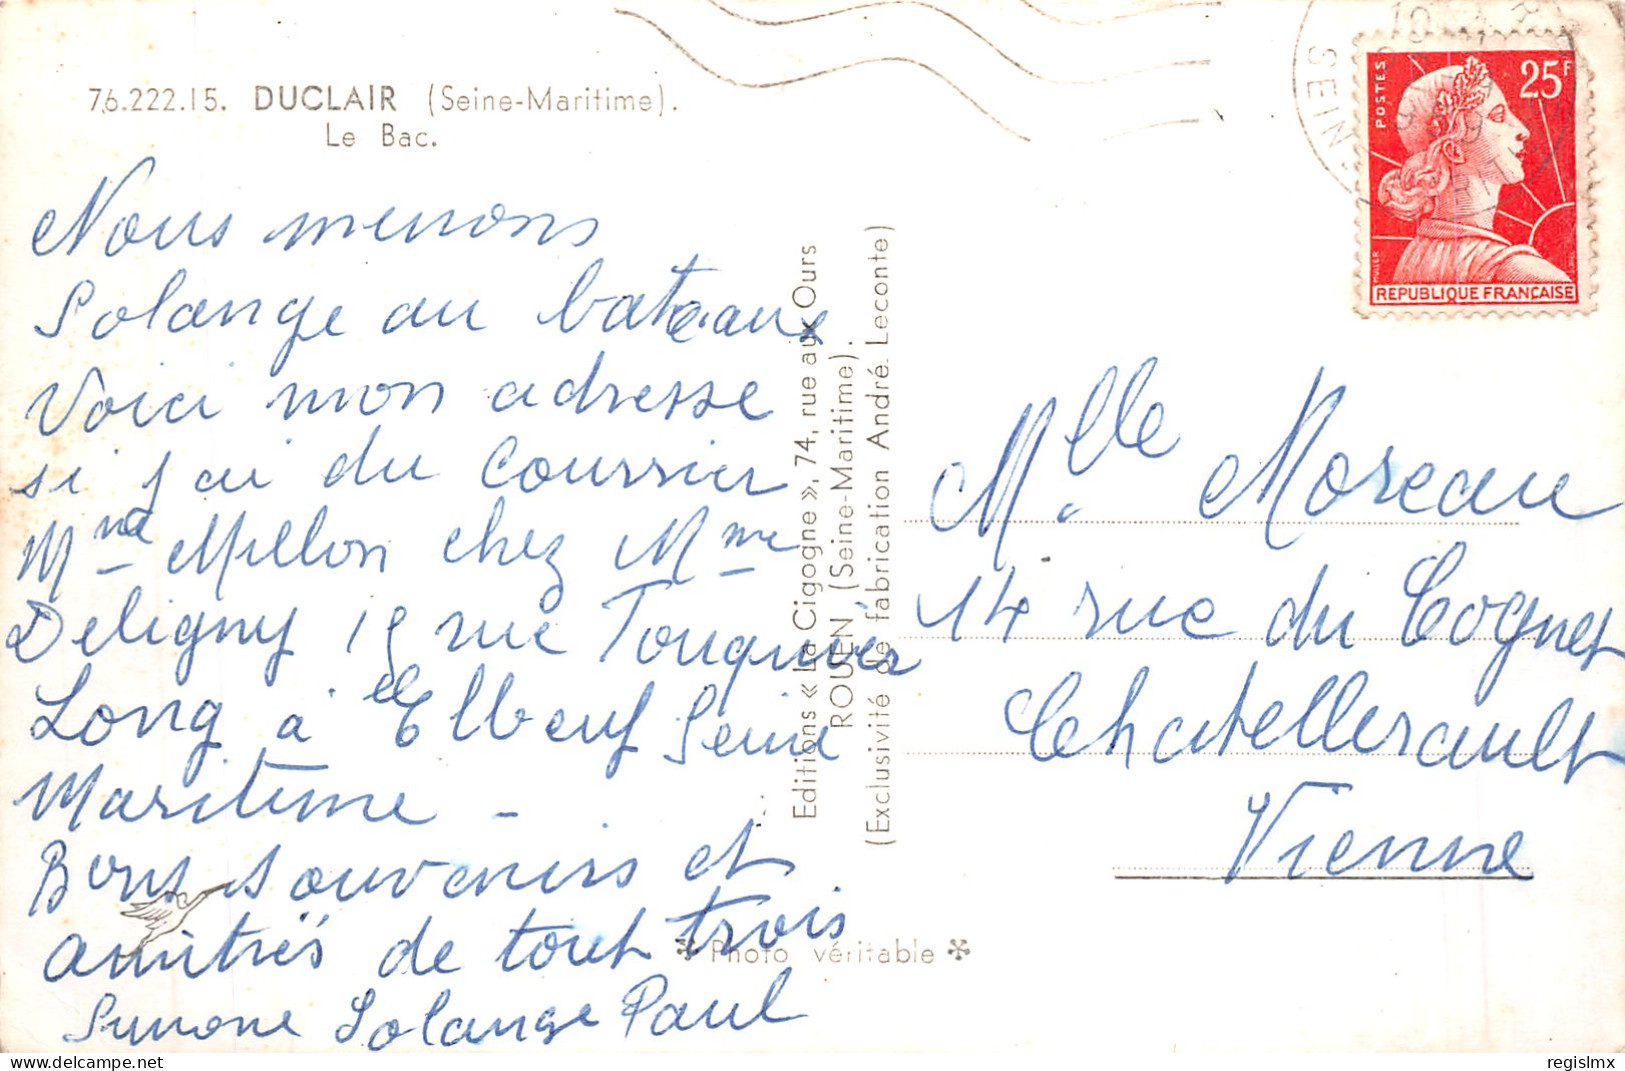 76.222.15. DUCLAIR (Seine-Maritime).
Le Bac.
Nous menons
Solange au bateaux
Voici mon adresse
si j'ai du courrier
Mme Millon chez Mme
Deligny 19 rue Touquier
Long à Elbeuf Seine
Maritime -
Bons souvenirs et
amitiés de tout trois
Simone Solange Paul
Editions « La Cigogne », 74, rue aux Ours
ROUEN (Seine-Maritime).
(Exclusivité de fabrication André Leconte)
Photo véritable
POSTES
25F
MULLER
REPUBLIQUE FRANÇAISE
Mlle Moreau
14 rue du Cognet
Chatellerault
Vienne
regislmx
delcampe.net